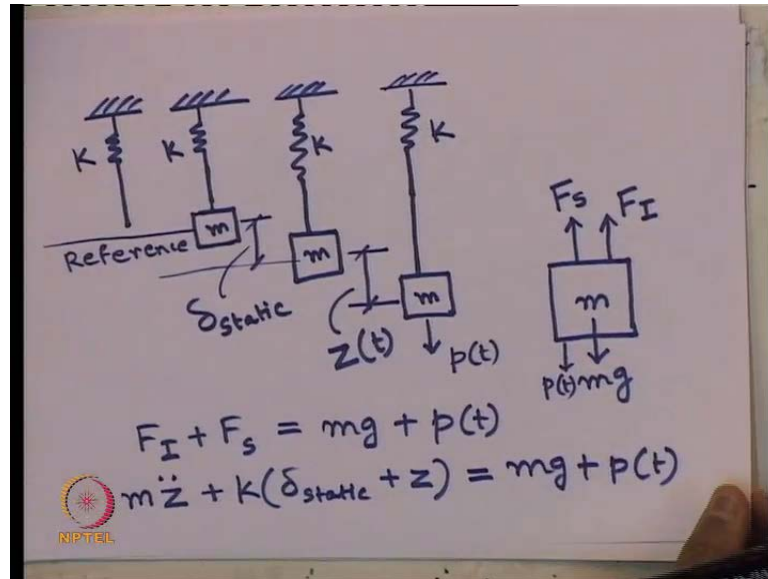 K
K
K
K
Reference
m
m
m
m
δstatic
z(t)
p(t)
Fs
FI
p(t)
mg
FI + Fs = mg + p(t)
mz̈ + K(δstatic + z) = mg + p(t)
NPTEL